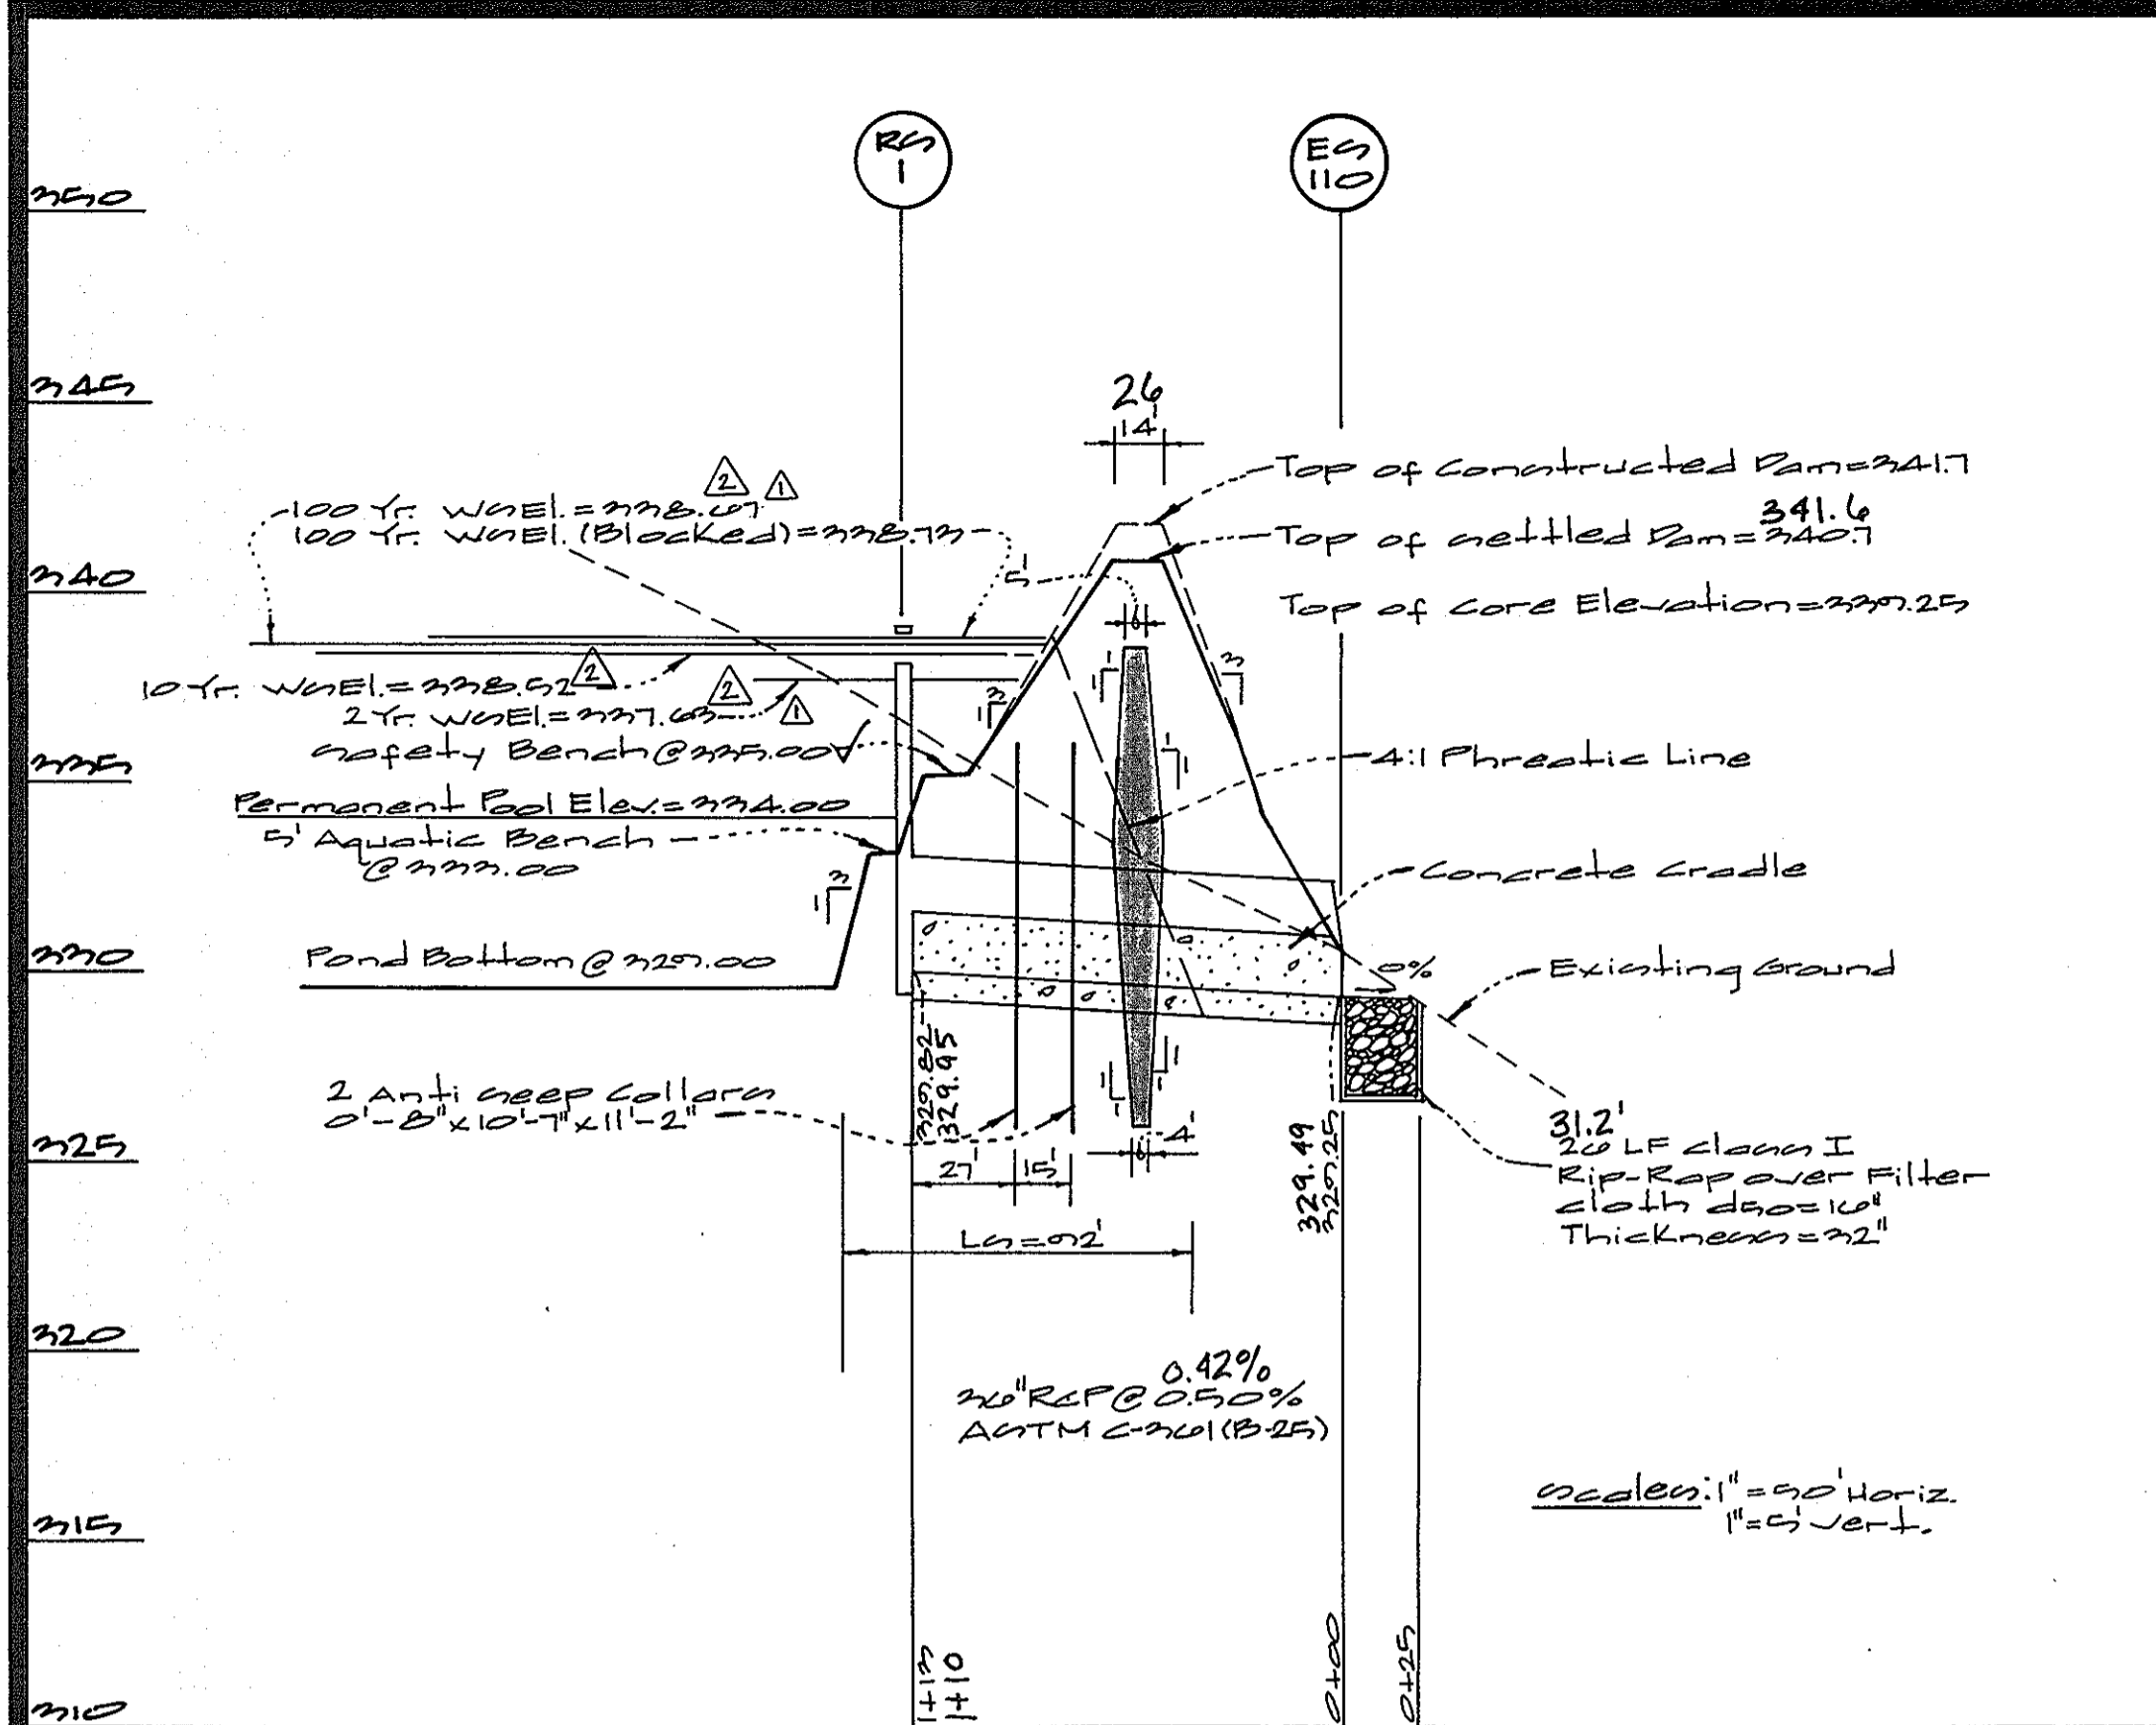 RS
1
ES
110
350
345
340
335
330
325
320
315
310
26
14'
Top of Constructed Dam=341.7
341.6
Top of Settled Dam=340.7
Top of Core Elevation=339.25
2
1
100 Yr. WSEl.=338.67
100 Yr. WSEl. (Blocked)=338.73
5'
6'
10 Yr. WSEl.=338.52
2
2 Yr. WSEl.=337.63
2
1
Safety Bench @ 335.00
Permanent Pool Elev.=334.00
5' Aquatic Bench
@ 333.00
Pond Bottom @ 329.00
3
1
3
1
3
1
1
1
1
1
1
1
4:1 Phreatic Line
Concrete Cradle
0%
Existing Ground
2 Anti Seep Collars
0'-8"x10'-7"x11'-2"
329.82
329.95
27'
15'
4'
6'
Ls=92'
329.49
329.25
31.2'
26 LF Class I
Rip-Rap over Filter
cloth d50=16"
Thickness=32"
0.42%
36"RCP@0.50%
ASTM C-361(B-25)
Scales: 1"=50' Horiz.
1"=5' Vert.
1+13
1+10
0+00
0+25